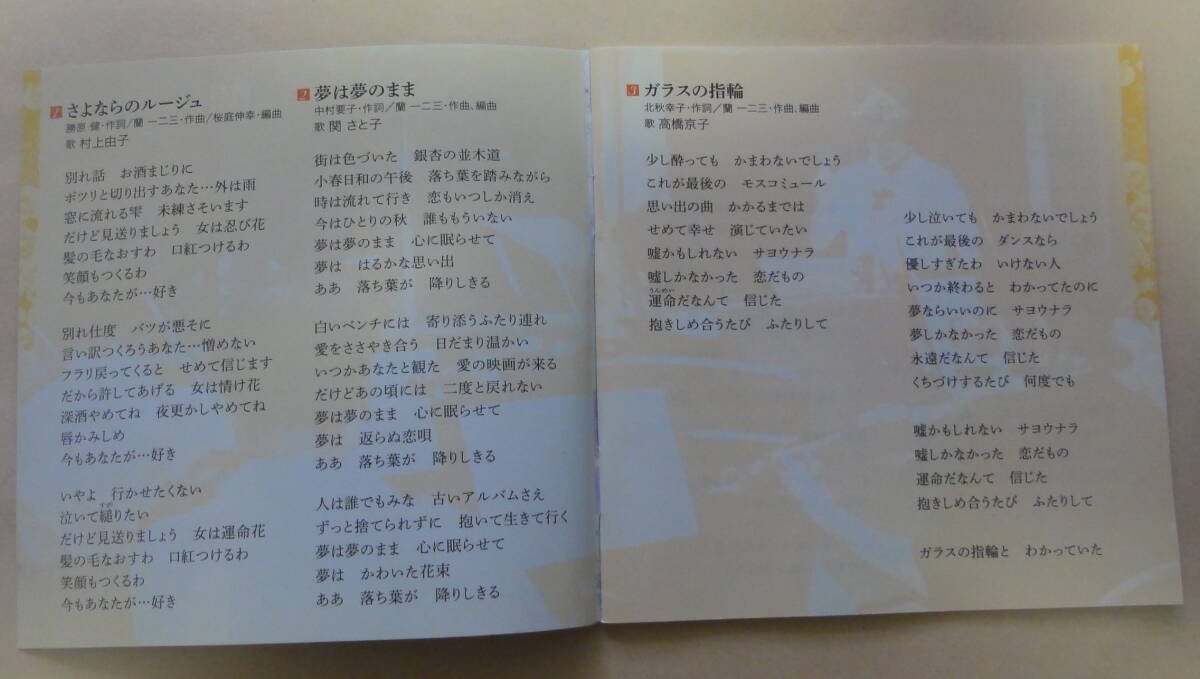 1 さよならのルージュ
勝原 健・作詞/蘭 一二三・作曲/桜庭伸幸・編曲
歌 村上由子
別れ話 お酒まじりに
ポツリと切り出すあなた…外は雨
窓に流れる雫 未練さそいます
だけど見送りましょう 女は忍び花
髪の毛なおすわ 口紅つけるわ
笑顔もつくるわ
今もあなたが…好き
別れ仕度 バツが悪そに
言い訳つくろうあなた…憎めない
フラリ戻ってくると せめて信じます
だから許してあげる 女は情け花
深酒やめてね 夜更かしやめてね
唇かみしめ
今もあなたが…好き
いやよ 行かせたくない
泣いて縋りたい
だけど見送りましょう 女は運命花
髪の毛なおすわ 口紅つけるわ
笑顔もつくるわ
今もあなたが…好き
2 夢は夢のまま
中村要子・作詞/蘭 一二三・作曲、編曲
歌 関 さと子
街は色づいた 銀杏の並木道
小春日和の午後 落ち葉を踏みながら
時は流れて行き 恋もいつしか消え
今はひとりの秋 誰ももういない
夢は夢のまま 心に眠らせて
夢は はるかな思い出
ああ 落ち葉が 降りしきる
白いベンチには 寄り添うふたり連れ
愛をささやき合う 日だまり温かい
いつかあなたと観た 愛の映画が来る
だけどあの頃には 二度と戻れない
夢は夢のまま 心に眠らせて
夢は 返らぬ恋唄
ああ 落ち葉が 降りしきる
人は誰でもみな 古いアルバムさえ
ずっと捨てられずに 抱いて生きて行く
夢は夢のまま 心に眠らせて
夢は かわいた花束
ああ 落ち葉が 降りしきる
3 ガラスの指輪
北秋幸子・作詞/蘭 一二三・作曲、編曲
歌 高橋京子
少し酔っても かまわないでしょう
これが最後の モスコミュール
思い出の曲 かかるまでは
せめて幸せ 演じていたい
嘘かもしれない サヨウナラ
嘘しかなかった 恋だもの
運命だなんて 信じた
抱きしめ合うたび ふたりして
少し泣いても かまわないでしょう
これが最後の ダンスなら
優しすぎたわ いけない人
いつか終わると わかってたのに
夢ならいいのに サヨウナラ
夢しかなかった 恋だもの
永遠だなんて 信じた
くちづけするたび 何度でも
嘘かもしれない サヨウナラ
嘘しかなかった 恋だもの
運命だなんて 信じた
抱きしめ合うたび ふたりして
ガラスの指輪と わかっていた